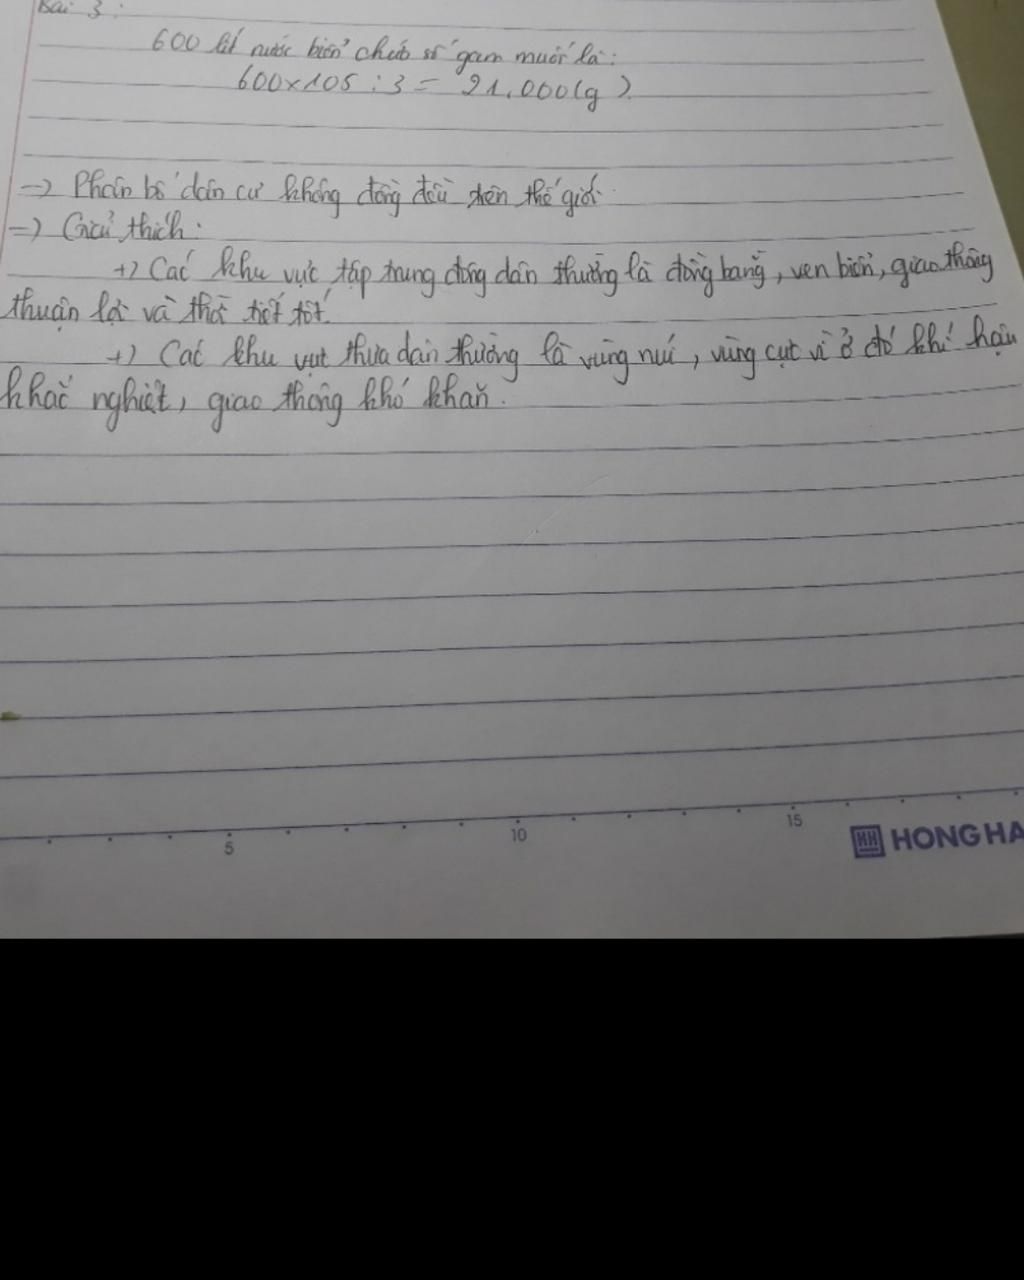 Bài 3:
600 lít nước biển chứa số gam muối là:
600x105 : 3 = 21.000(g)
=> Phân bố dân cư không đồng đều trên thế giới.
=> Giải thích:
+) Các khu vực tập trung đông dân thường là đồng bằng, ven biển, giao thông
thuận lợi và thời tiết tốt.
+) Các khu vực thưa dân thường là vùng núi, vùng cực vì ở đó khí hậu
khắc nghiệt, giao thông khó khăn.
5 10 15
HH HONG HA